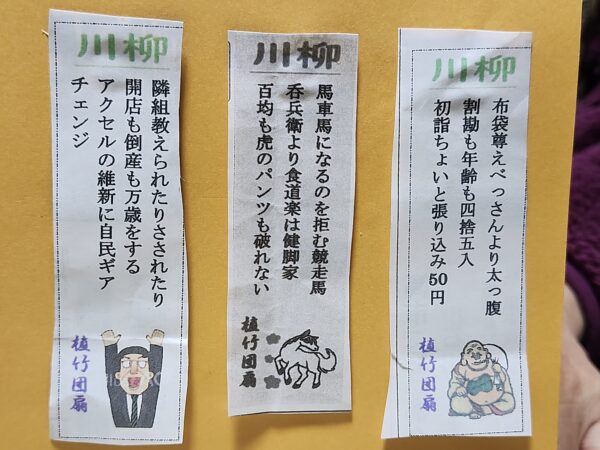 川柳
布袋尊えべっさんより太っ腹
割勘も年齢も四捨五入
初詣ちょいと張り込み50円
植竹団扇
川柳
馬車馬になるのを拒む競走馬
呑兵衛より食道楽は健脚家
百均も虎のパンツも破れない
植竹団扇
川柳
隣組教えられたりさされたり
開店も倒産も万歳をする
アクセルの維新に自民ギア
チェンジ
植竹団扇